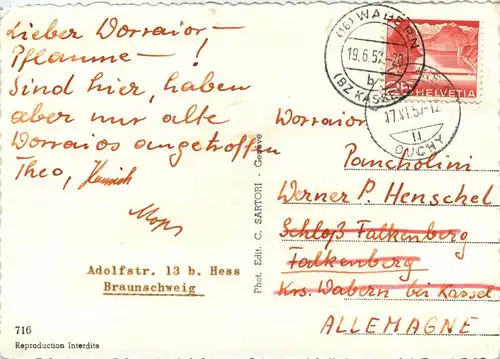 Lieber Worraior-
Pflaume- !
Sind hier, haben
aber nur alte
Worraios angetroffen
Theo, Heinrich
Mops
Adolfstr. 13 b. Hess
Braunschweig
716
Reproduction Interdite
Phot. Edit. C. SARTORI - Genève
(16) WABERN
19.6.52.-20
b
(BZ KASSEL)
HELVETIA
17.VI.52-12
II
OUCHY
Worraior
Pancholini
Werner P. Henschel
Schloß Falkenberg
Falkenberg
Krs. Wabern bei Kassel
ALLEMAGNE